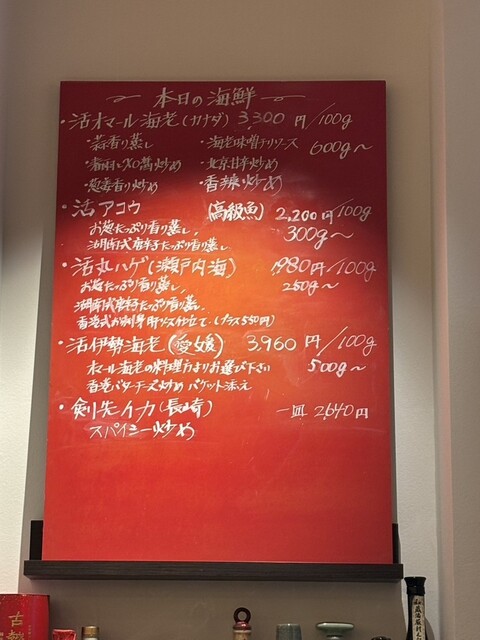 本日の海鮮
・活オマール海老(カナダ) 3,300円/100g
・蒜香り蒸し ・海老味噌チリソース 600g〜
炒め ・北京甘辛炒め
・葱姜香り炒め ・香辣炒め
・活アコウ (高級魚) 2,200円/100g
お葱たっぷり香り蒸し、 300g〜
湖南式唐辛子たっぷり香り蒸し
・活丸ハゲ(瀬戸内海) 1,980円/100g
お葱たっぷり香り蒸し、 250g〜
湖南式唐辛子たっぷり香り蒸し、
香港式お刺身 肝ソース仕立て(プラス550円)
・活伊勢海老(愛媛) 3,960円/100g
オマール海老の料理方よりお選び下さい 500g〜
香港バターチーズ炒め バゲット添え
・剣先イカ(長崎) 一皿 2,640円
スパイシー炒め